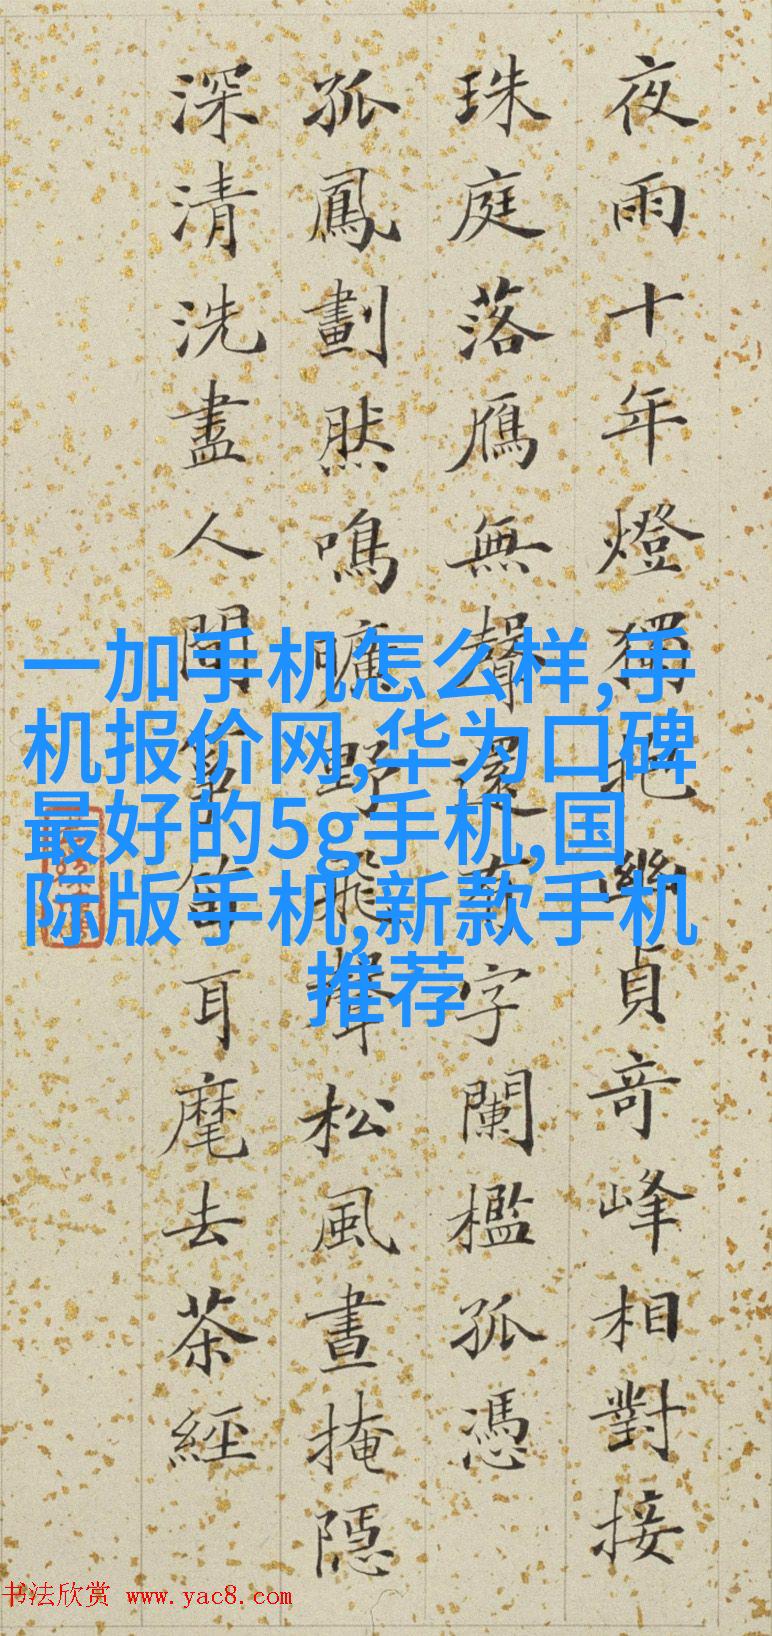 夜雨十年燈獨抱幽貞奇峰相對接
珠庭落鴈無聲還有字闌檻孤憑
孤鳳劃然鳴曠野飛聲松風晝掩隱
深清洗盡人間箏笛耳麾去茶經
一加手机怎么样,手
机报价网,华为口碑
最好的5g手机,国
际版手机,新款手机
推荐
书法欣赏 www.yac8.com